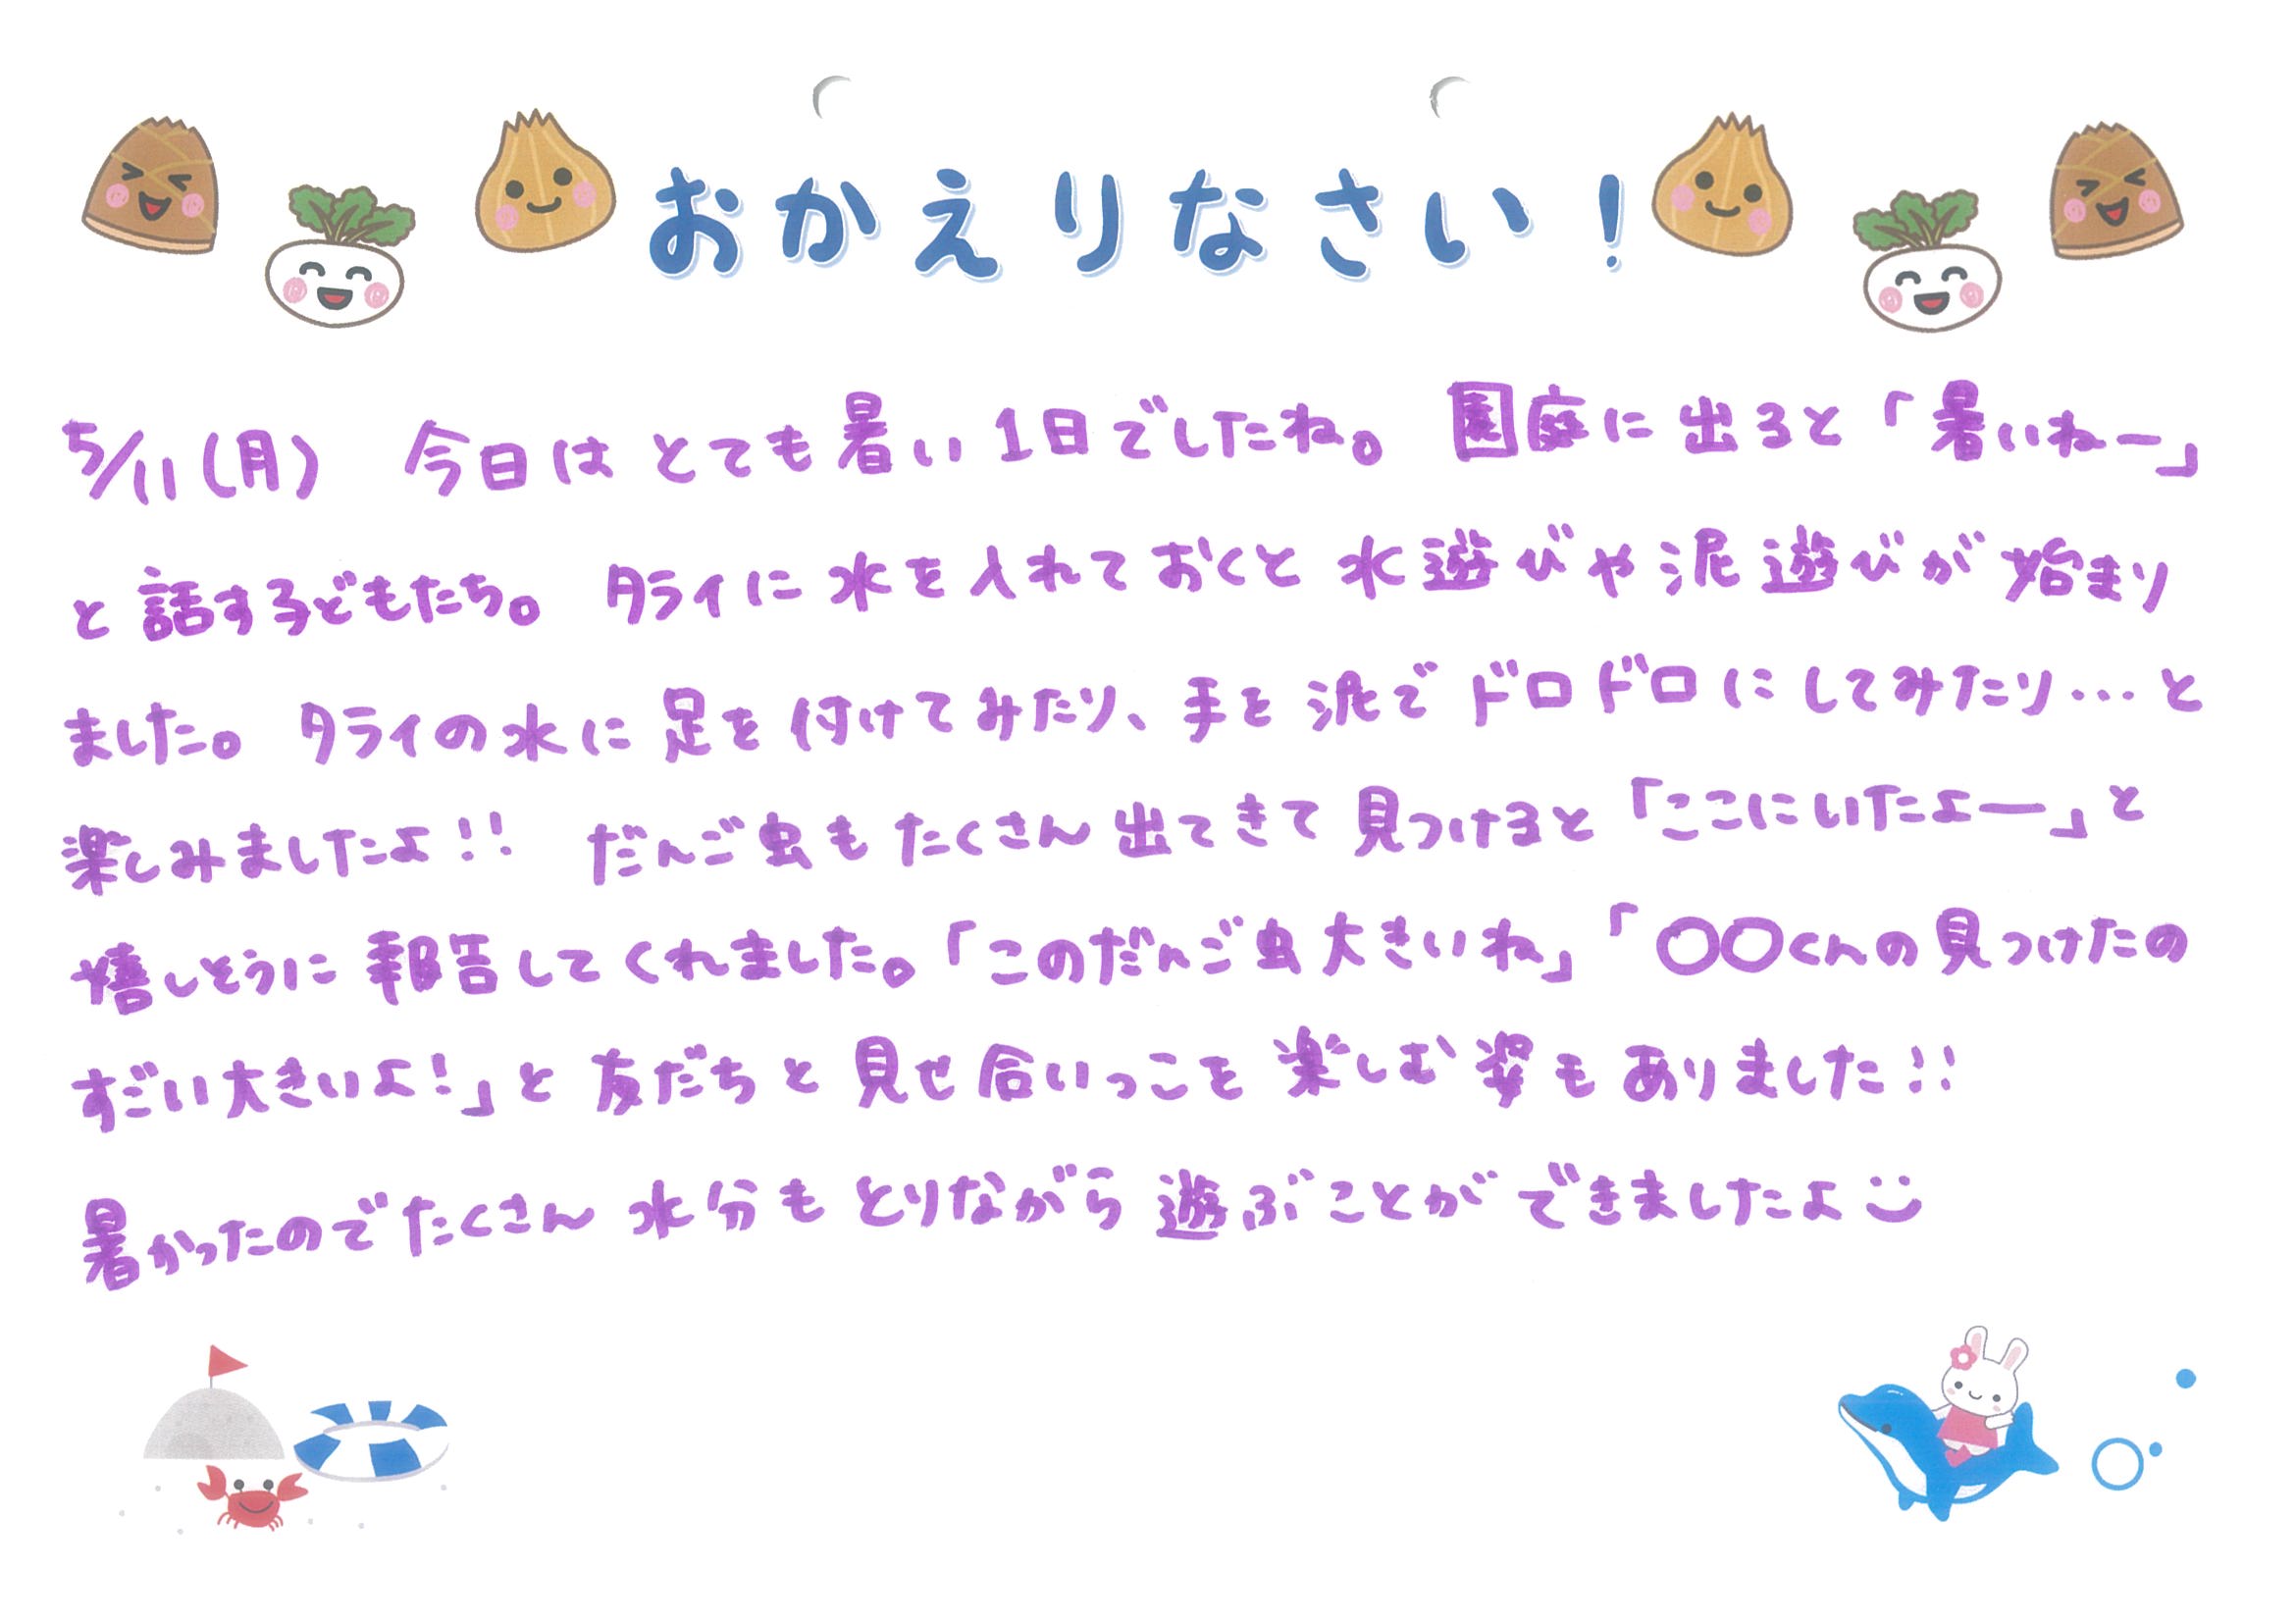 おかえりなさい!
5/11(月) 今日はとても暑い1日でしたね。園庭に出ると「暑いねー」
と話す子どもたち。タライに水を入れておくと水遊びや泥遊びが始まり
ました。タライの水に足を付けてみたり、手を泥でドロドロにしてみたり…と
楽しみましたよ!! だんご虫もたくさん出てきて見つけると「ここにいたよー」と
嬉しそうに報告してくれました。「このだんご虫大きいね」「〇〇くんの見つけたの
すごい大きいよ!」と友だちと見せ合いっこを楽しむ姿もありました!!
暑かったのでたくさん水分もとりながら遊ぶことができましたよ